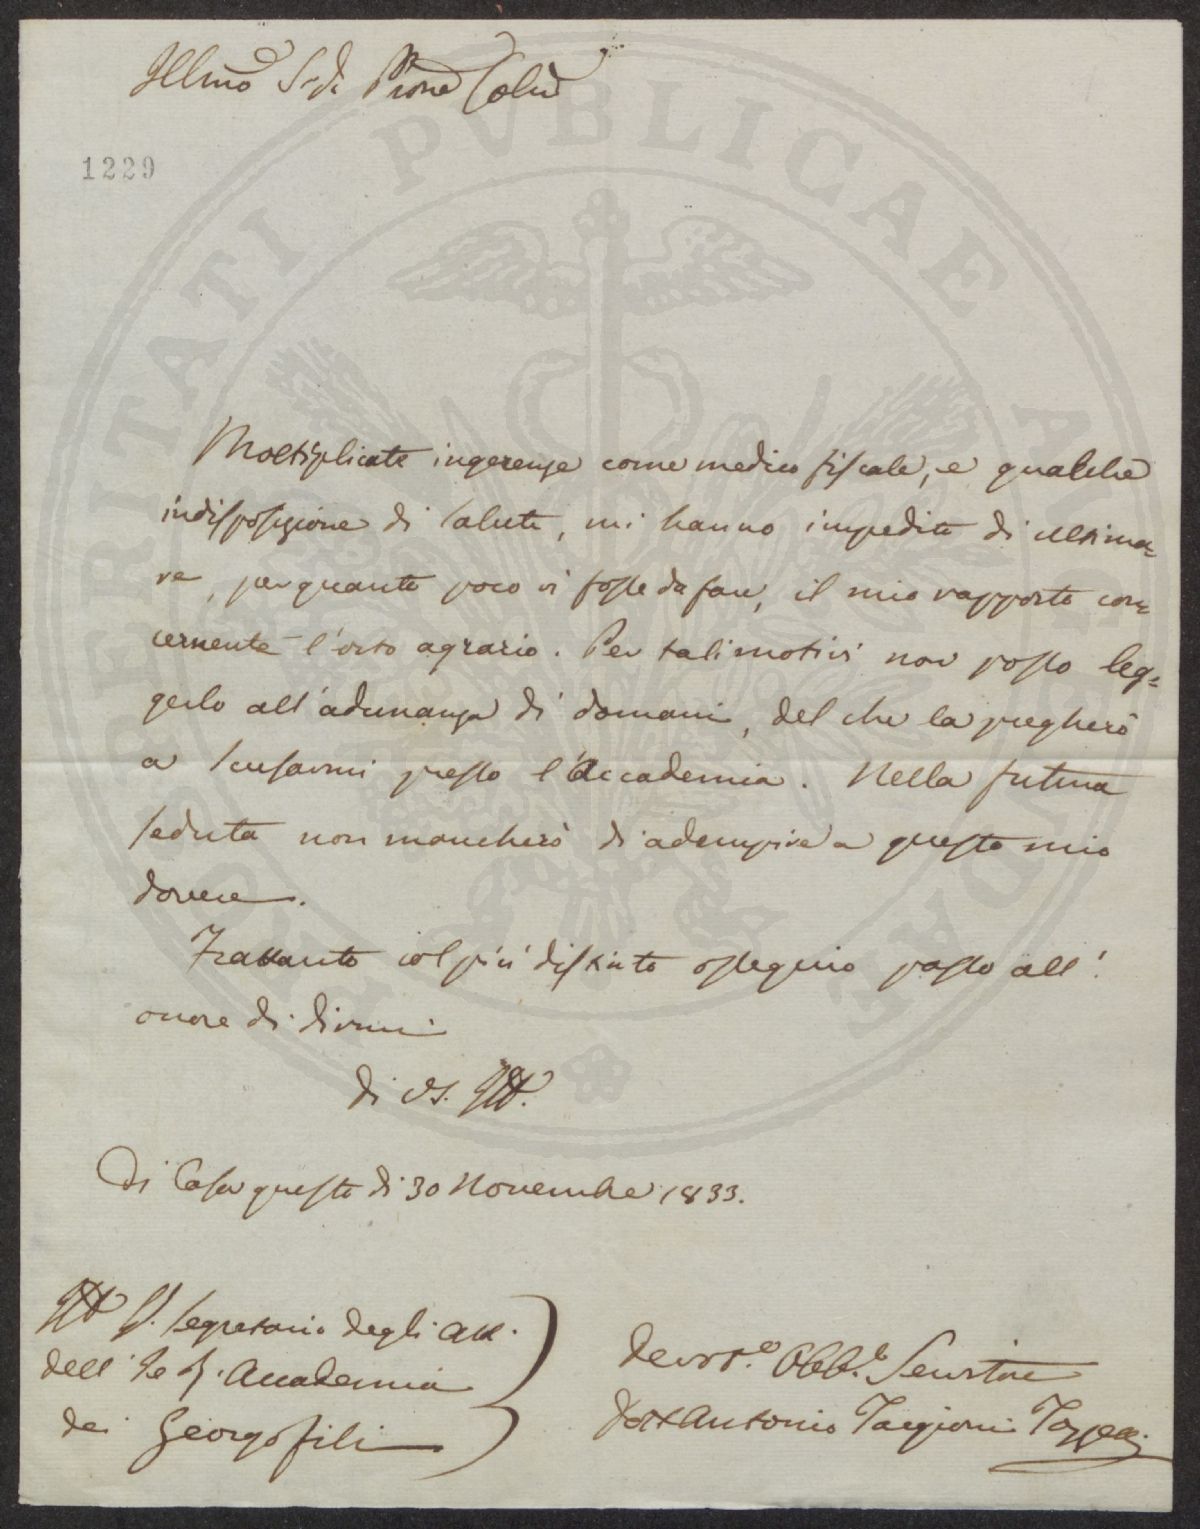 Illmo Sr. di Prone Colmo
1229
Moltiplicate ingerenze come medico fiscale, e qualche
indisposizione di salute, mi hanno impedito di ultima=
re, per quanto poco vi fosse da fare, il mio rapporto con=
cernente l'orto agrario. Per tali motivi non posso leg=
gerlo all'adunanza di domani, del che la pregherò
a scusarmi presso l'Accademia. Nella futura
seduta non mancherò di adempire a questo mio
dovere.
Frattanto col più distinto ossequio passo all'
onore di dirmi
di VS. Ill.
Di Casa questo dì 30 Novembre 1833.
Ill. S. Segretario degli Att.
dell' I e R. Accademia
dei Georgofili
Devot.o Obb.o Servitore
Dott Antonio Targioni Tozzetti
PROSPERITATI PVBLICAE AVGENDAE